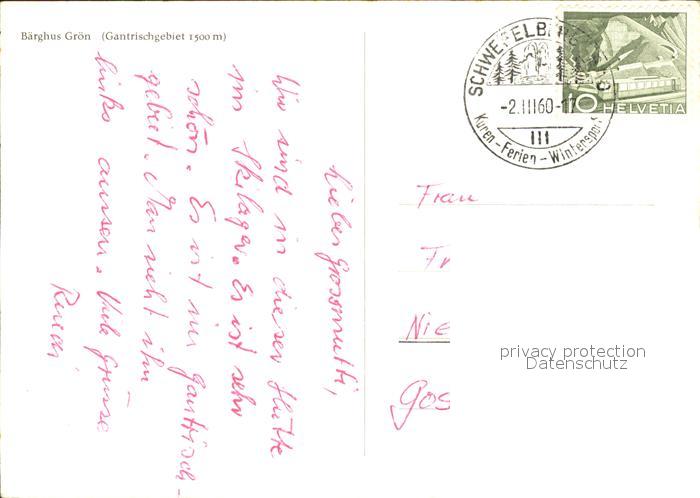 Bärghus Grön (Gantrischgebiet 1500 m)
Liebes Grossmutti,
Wir sind in dieser Hütte
im Skilager. Es ist sehr
schön. Es ist im Gantrisch-
gebiet. Man sieht ihn
links aussen. Viele Grüsse
Ruedi
SCHWEFELB
-2.III60-17
III
Kuren-Ferien-Wintersport
10 HELVETIA
Frau
Fr
Nie
Gos
privacy protection
Datenschutz